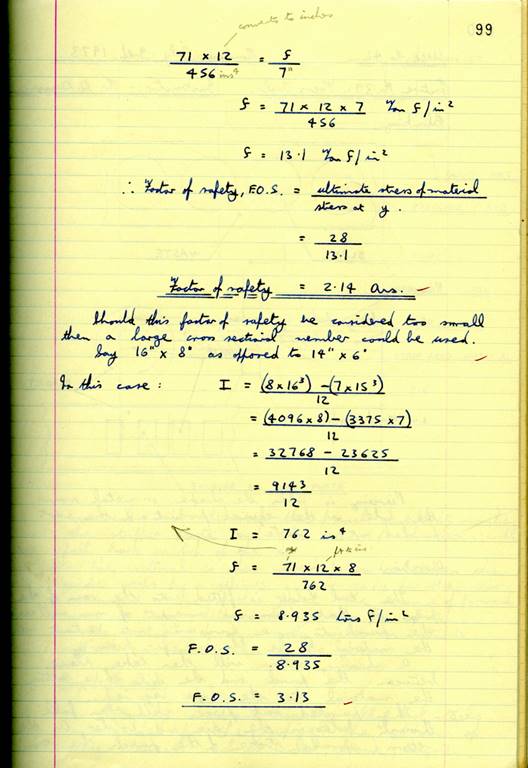 99
converts to inches
71 x 12 / 456 ins⁴ = f / 7"
f = 71 x 12 x 7 / 456 Ton f/in²
f = 13.1 Ton f/in²
∴ Factor of safety, F.O.S. = ultimate stress of material / stress at y.
= 28 / 13.1
Factor of safety = 2.14 Ans.
Should this factor of safety be considered too small
then a large cross sectional member could be used.
Say 16" x 8" as opposed to 14" x 6"
In this case: I = (8x16³) - (7x15³) / 12
= (4096x8) - (3375x7) / 12
= 32768 - 23625 / 12
= 9143 / 12
I = 762 ins⁴
f = 71 x 12 x 8 / 762
f = 8.935 tons f/in²
F.O.S. = 28 / 8.935
F.O.S. = 3.13